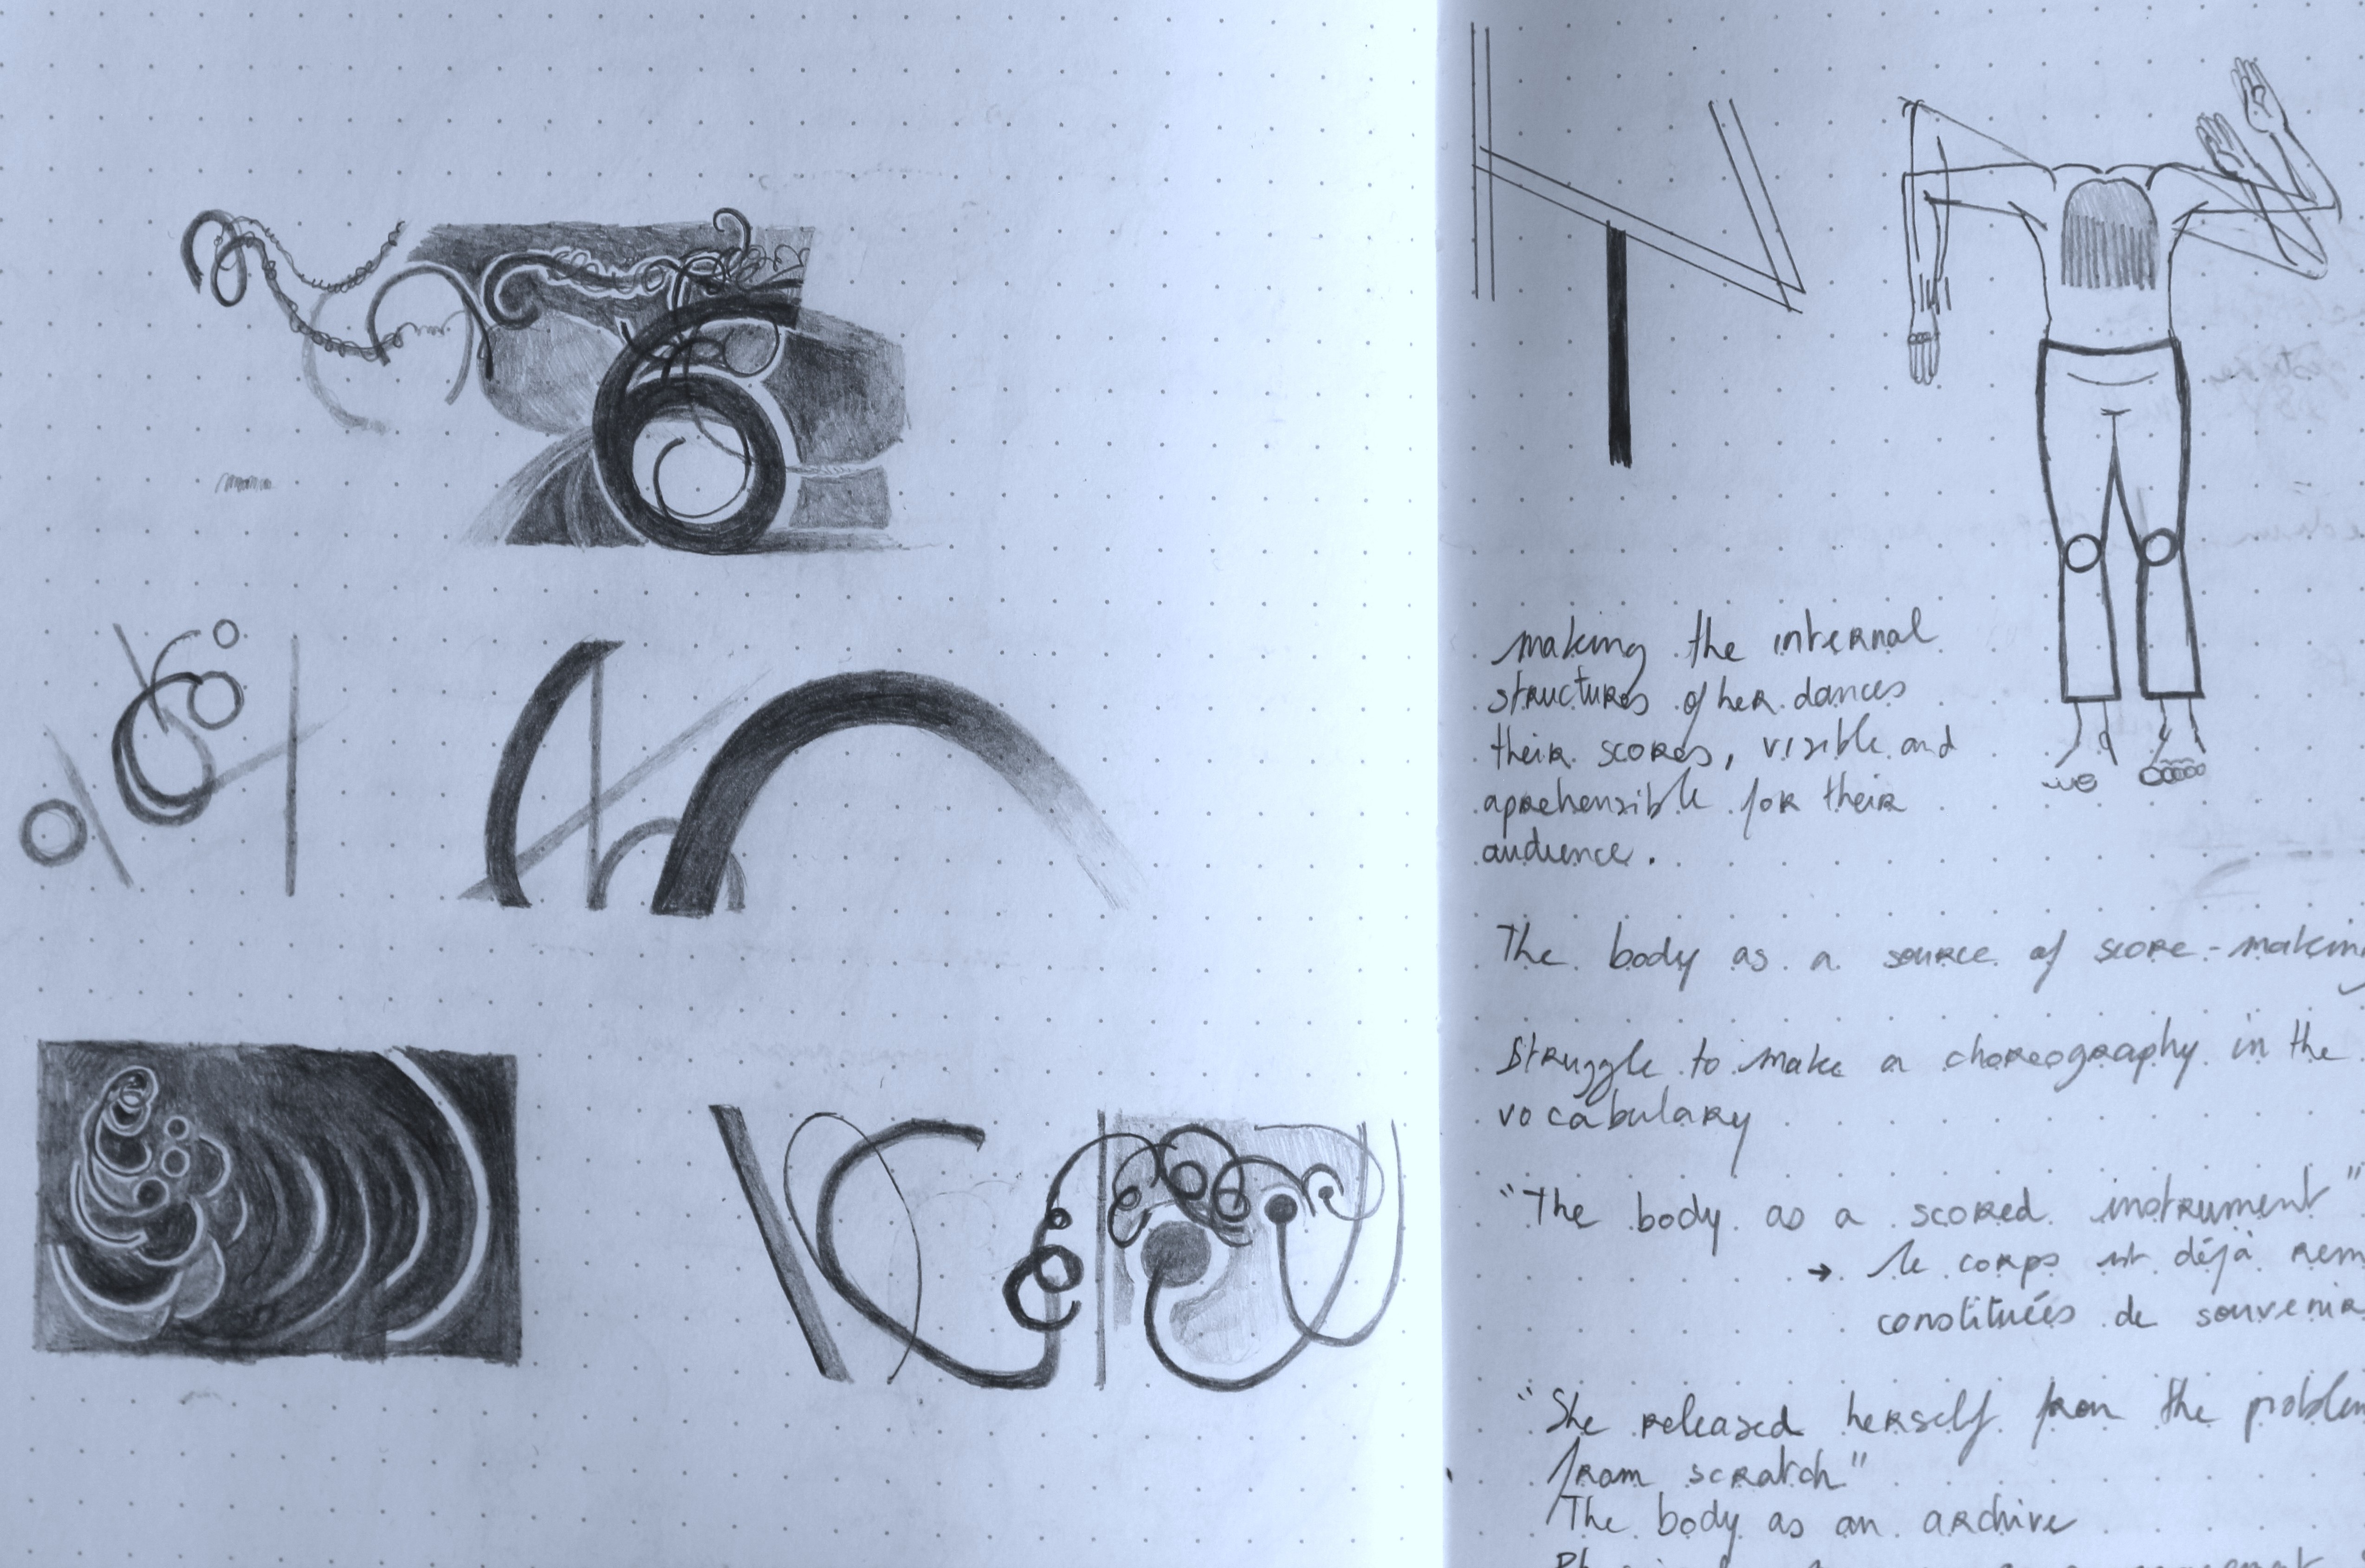 making the internal
structures of her dances
their scores, visible and
aprehensible for their
audience.
The body as a source of score-making
Struggle to make a choreography in the
vocabulary
"The body as a scored instrument"
→ le corps est déjà rem
constituées de souvenir
"She released herself from the problem
from scratch"
The body as an archive